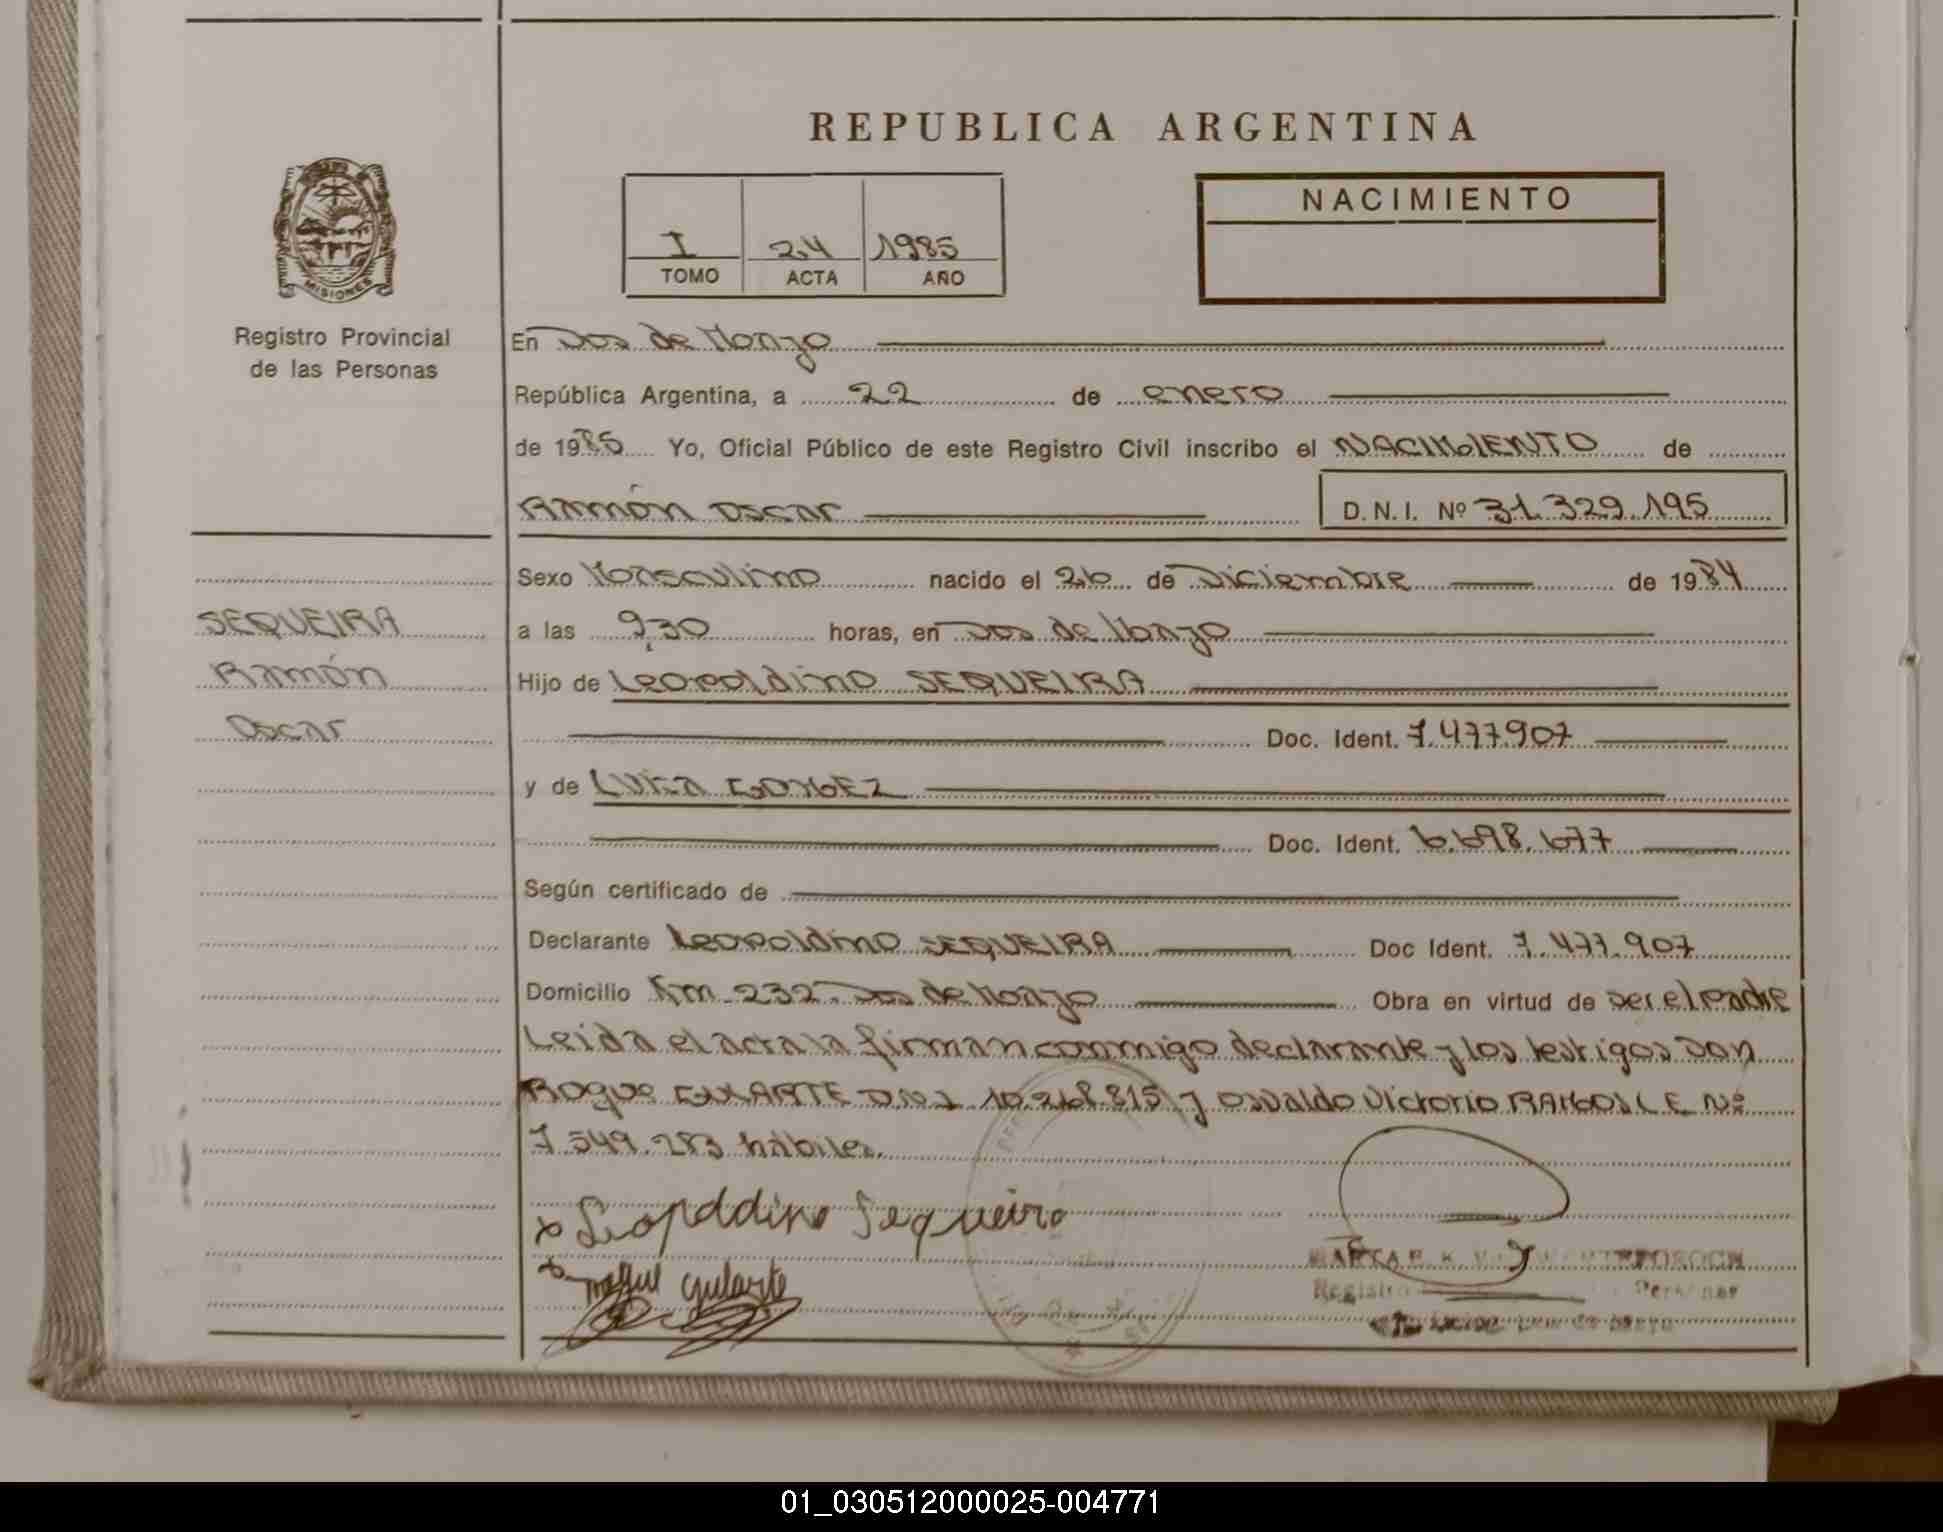 REPUBLICA ARGENTINA
MISIONES
Registro Provincial
de las Personas
I 24 1985
TOMO ACTA AÑO
NACIMIENTO
En Dos de Mayo
República Argentina, a 22 de enero
de 1985 Yo, Oficial Público de este Registro Civil inscribo el NACIMIENTO de
Ramón Oscar D.N.I. Nº 31.329.195
Sexo Masculino nacido el 26 de Diciembre de 1984
SEQUEIRA
Ramón
Oscar
a las 9,30 horas, en Dos de Mayo
Hijo de Leopoldino SEQUEIRA
Doc. Ident. 7.477.907
y de Luisa GOMEZ
Doc. Ident. 6.698.677
Según certificado de
Declarante Leopoldino SEQUEIRA Doc Ident. 7.477.907
Domicilio Km 232 Dos de Mayo Obra en virtud de ser el padre
Leida el acta la firman conmigo declarante y los testigos Don
Roque GULARTE DNI 10.268.815 y Osvaldo Victorio RAMOS L E Nº
7.549.283 hábiles.
x Leopoldino Sequeira
x gularte
Registro Personas
01_030512000025-004771